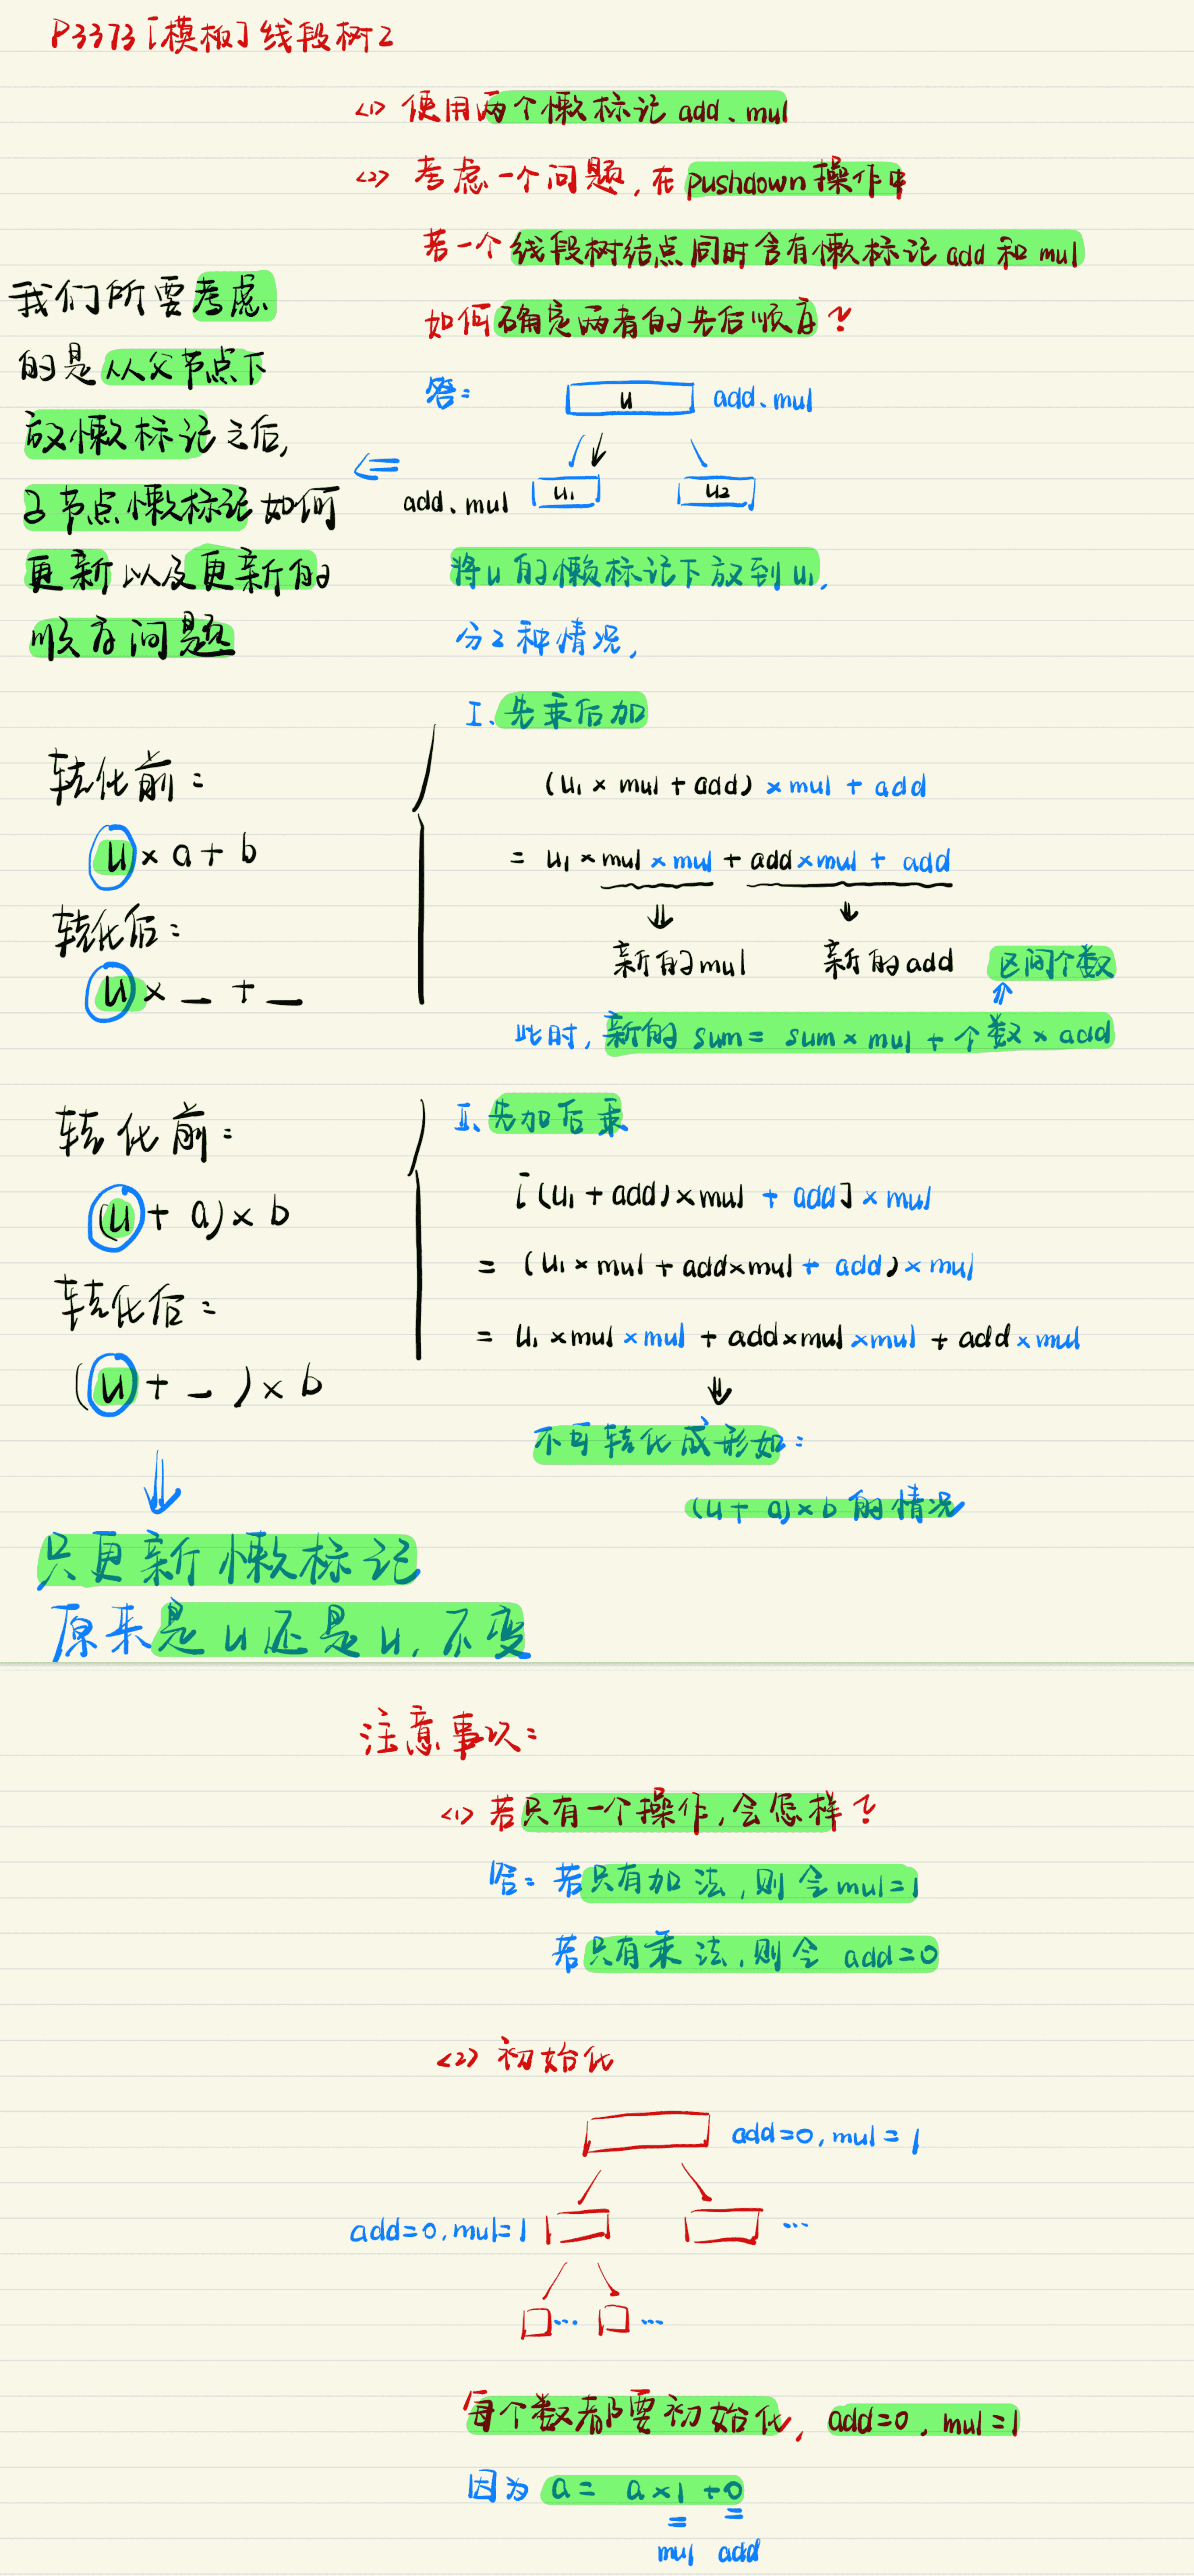 P3373 [模板] 线段树2
<1> 使用两个懒标记 add、mul
<2> 考虑一个问题, 在 pushdown 操作中
若一个 线段树结点同时含有懒标记 add 和 mul
如何确定两者的先后顺序?
我们所要考虑
的是从父节点下
放懒标记之后,
子节点懒标记如何
更新以及更新的
顺序问题
答: u add、mul
<=
add、mul u₁ u₂
将u的懒标记下放到u₁,
分2种情况,
I、先乘后加
转化前:
u × a + b
转化后:
u × _ + _
(u₁ × mul + add) × mul + add
= u₁ × mul × mul + add × mul + add
新的mul 新的add 区间个数
此时, 新的 sum = sum × mul + 个数 × add
II、先加后乘
转化前:
(u + a) × b
转化后:
(u + _ ) × b
[(u₁ + add) × mul + add] × mul
= (u₁ × mul + add × mul + add) × mul
= u₁ × mul × mul + add × mul × mul + add × mul
不可转化成形如:
(u + a) × b 的情况
只更新懒标记
原来是u还是u, 不变
注意事项:
<1> 若只有一个操作, 会怎样?
答: 若只有加法, 则令 mul=1
若只有乘法, 则令 add=0
<2> 初始化
add=0, mul=1
add=0, mul=1 ...
... ...
每个数都要初始化, add=0, mul=1
因为 a = a×1+0
= =
mul add